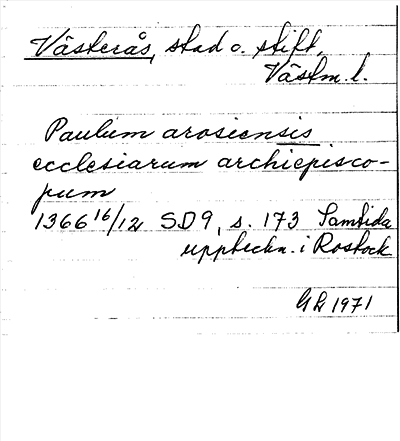 Västerås, stad o. stift,
Västm. l.
Paulum arosiensis
ecclesiarum archiepisco-
pum
1366 16/12 SD9, s. 173 Samtida
uppteckn. i Rostock
GL 1971